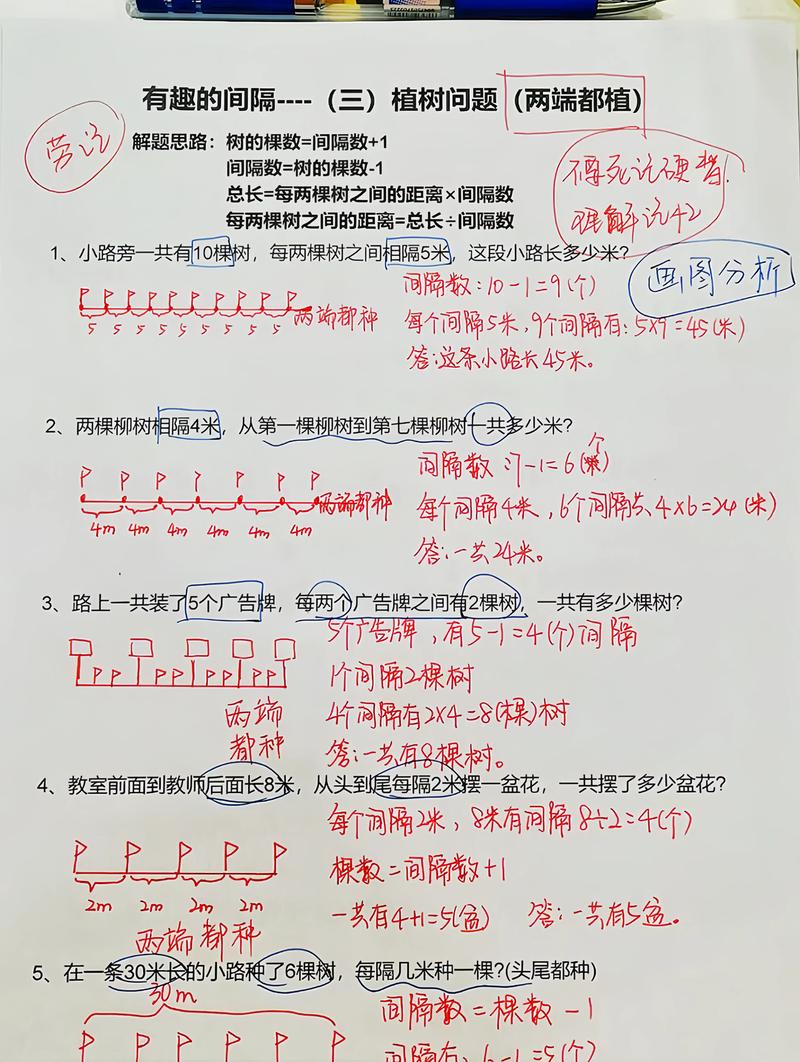 有趣的间隔----（三）植树问题（两端都植）
劳记
解题思路：树的棵数=间隔数+1
间隔数=树的棵数-1
总长=每两棵树之间的距离×间隔数
每两棵树之间的距离=总长÷间隔数
不要死记硬背！
理解记忆
画图分析
1、小路旁一共有10棵树，每两棵树之间相隔5米，这段小路长多少米？
5 5 5 5 5 5 5 5 5
两端都种
间隔数：10-1=9(个)
每个间隔5米，9个间隔有：5×9=45(米)
答：这条小路长45米。
2、两棵柳树相隔4米，从第一棵柳树到第七棵柳树一共多少米？
4m 4m 4m 4m 4m 4m
两端都种
间隔数：7-1=6(个)
每个间隔4米，6个间隔共4×6=24(米)
答：一共24米。
3、路上一共装了5个广告牌，每两个广告牌之间有2棵树，一共有多少棵树？
两端
都种
5个广告牌，有5-1=4(个)间隔
1个间隔2棵树
4个间隔有2×4=8(棵)树
答：一共有8棵树。
4、教室前面到教师后面长8米，从头到尾每隔2米摆一盆花，一共摆了多少盆花？
2m 2m 2m 2m
两端都种
每个间隔2米，8米有间隔8÷2=4(个)
棵数=间隔数+1
一共有4+1=5(盆) 答：一共有5盆。
5、在一条30米长的小路种了6棵树，每隔几米种一棵?(头尾都种)
30m
间隔数=棵数-1
间隔有：6-1=5(个)